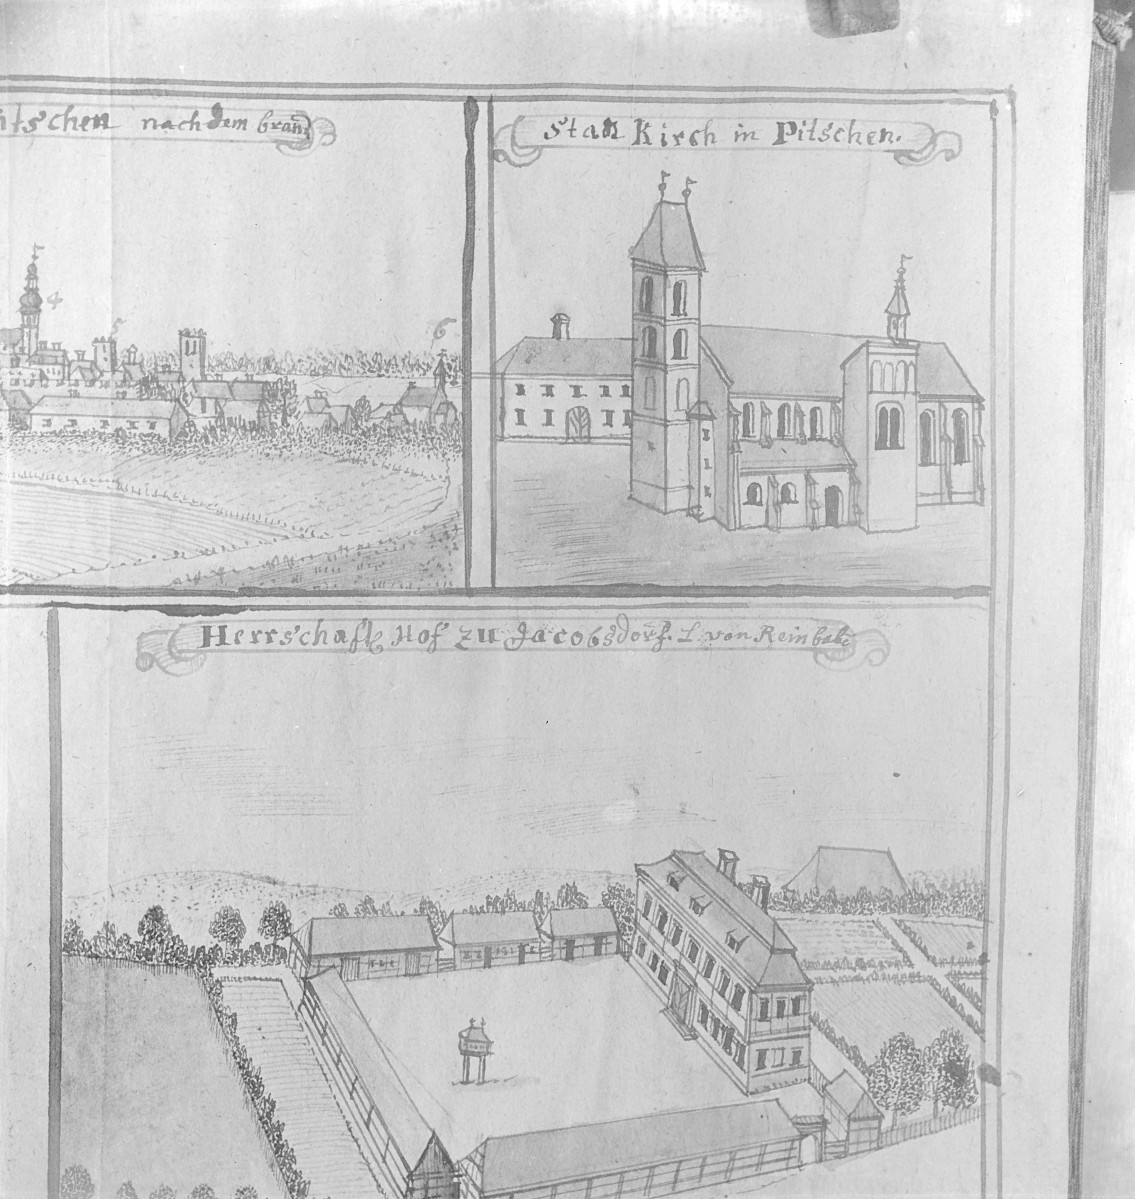 itschen nach dem brand
Statt Kirch in Pitschen.
4
5
6
Herrschaftl Hof zu Jacobsdorf. L von Reinbabe